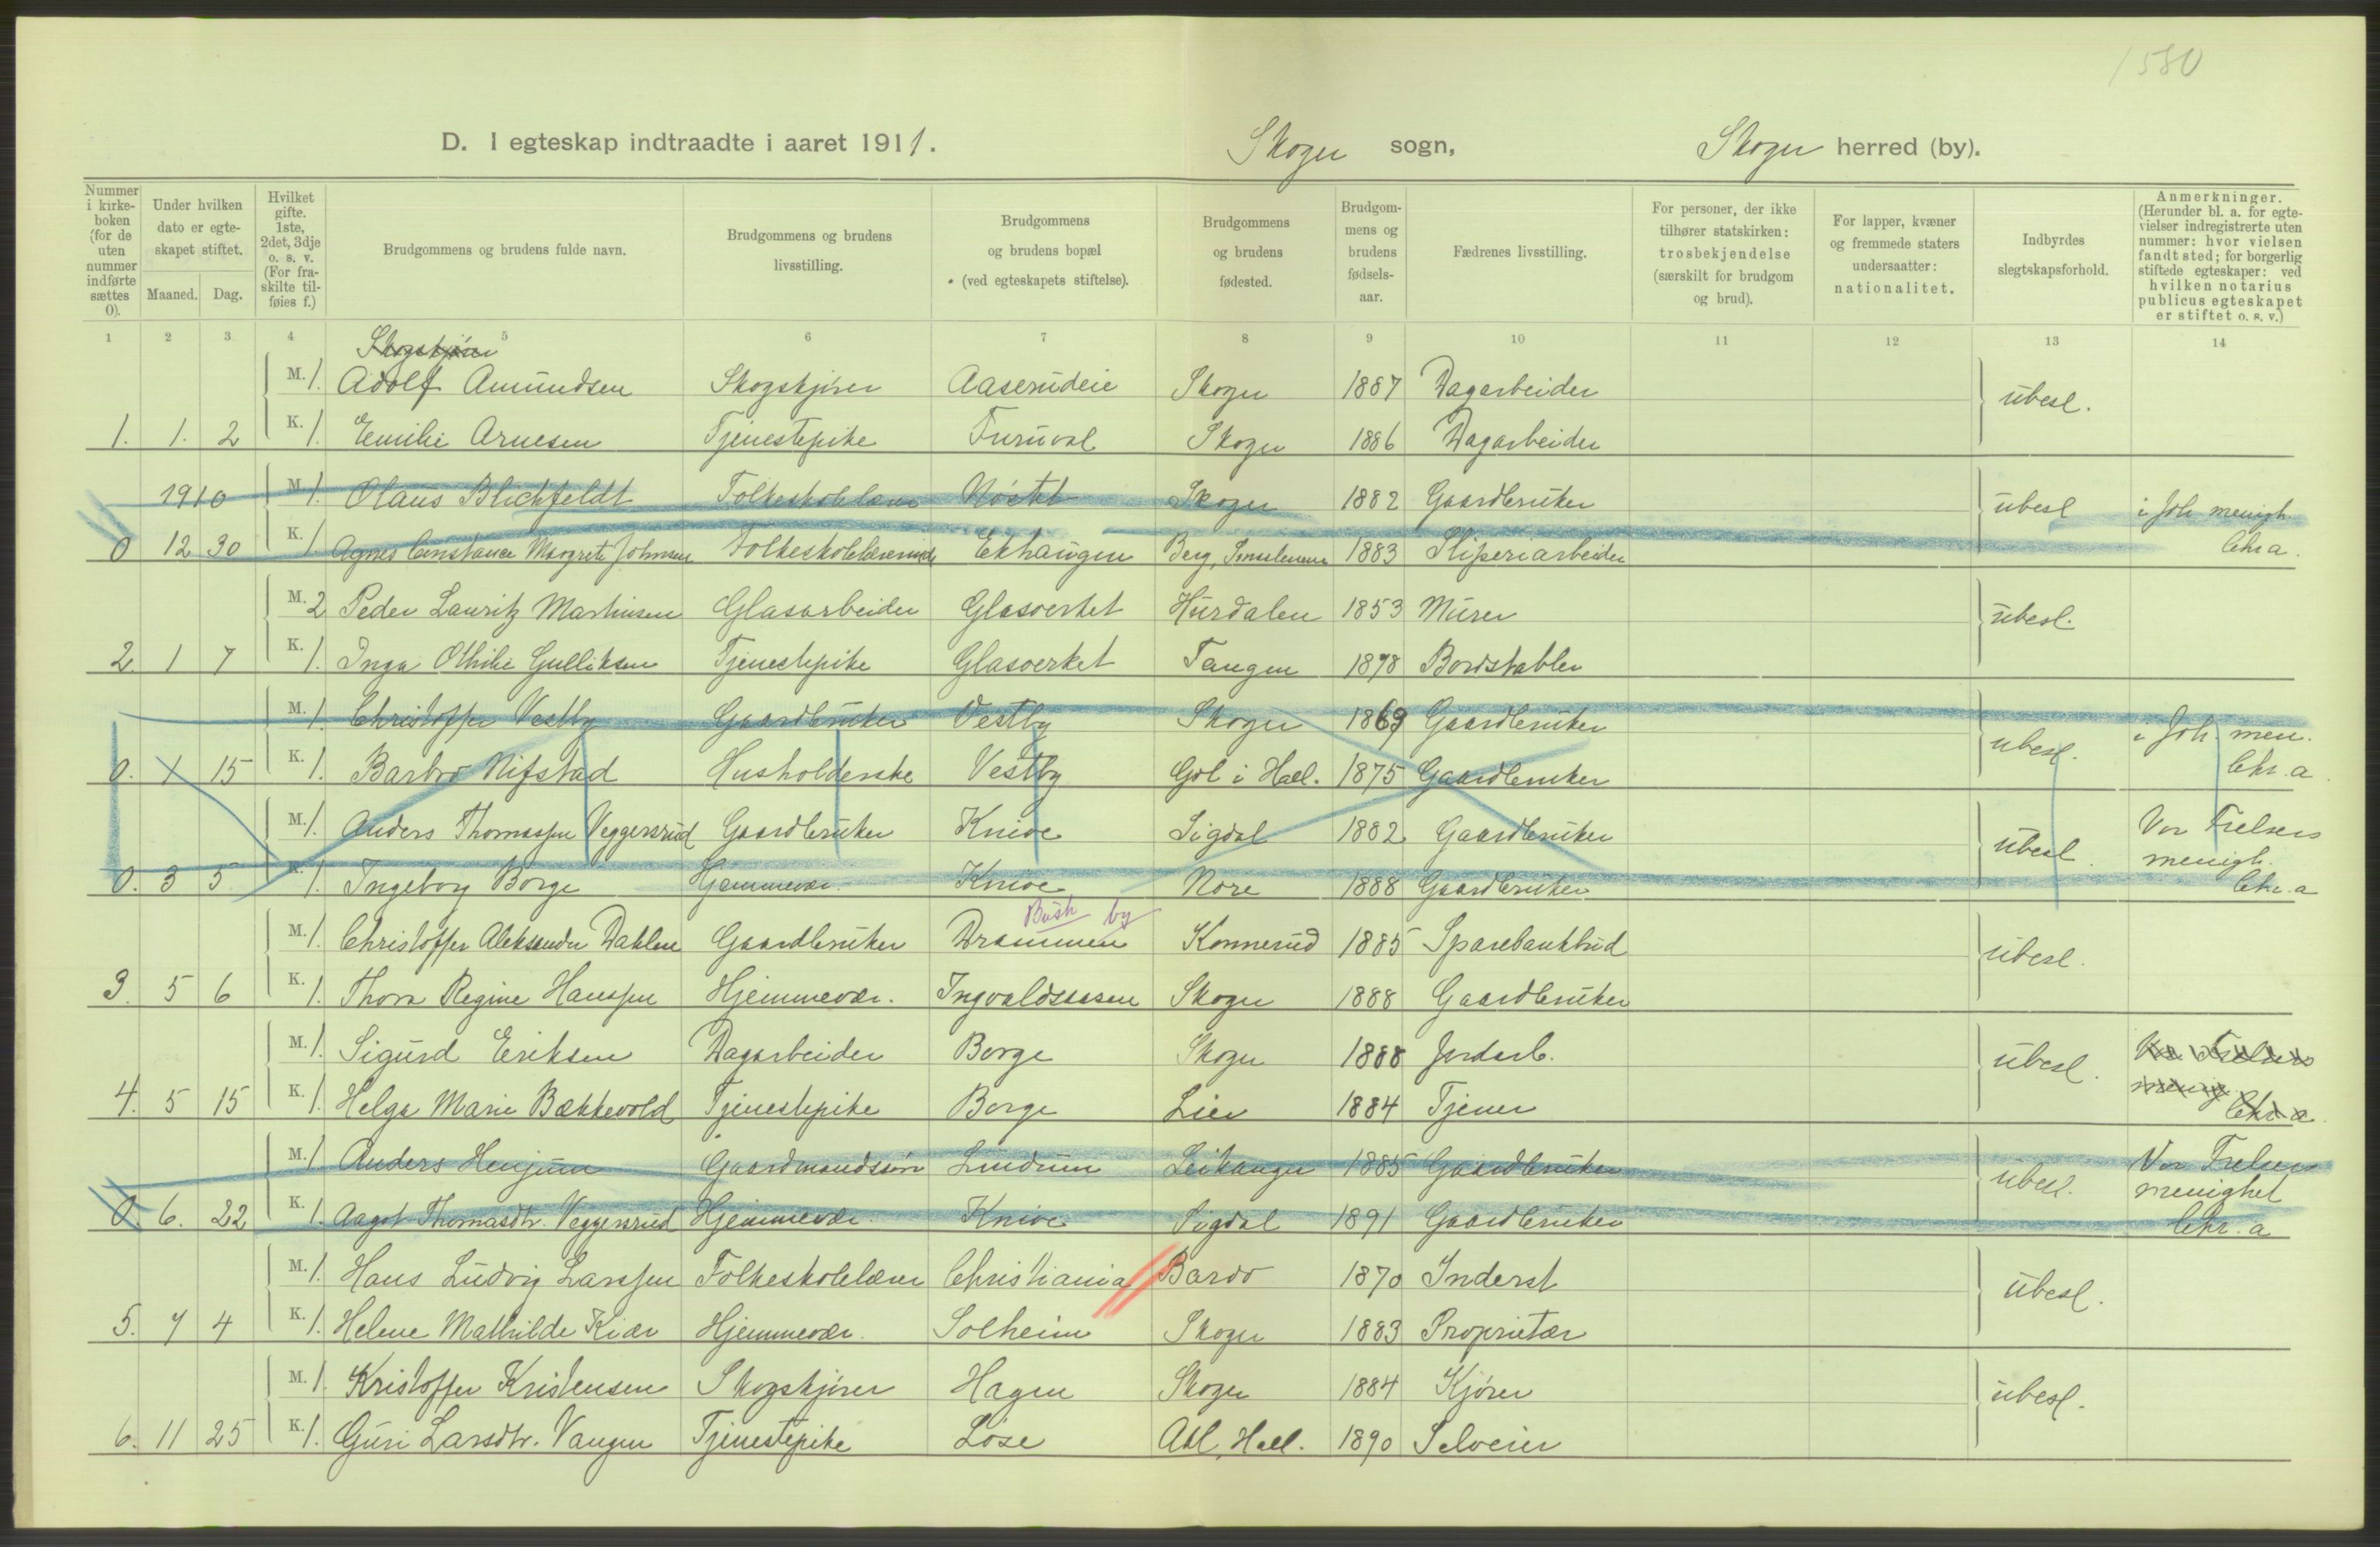 1580
D. I egteskap indtraadte i aaret 1911. Skoger sogn, Skoger herred (by).
Nummer i kirke-boken (for de uten nummer indførte sættes 0).
Under hvilken dato er egte-skapet stiftet.
Maaned. Dag.
Hvilket gifte. 1ste, 2det, 3dje o. s. v. (For fra-skilte til-føies f.)
Brudgommens og brudens fulde navn.
Brudgommens og brudens livsstilling.
Brudgommens og brudens bopæl (ved egteskapets stiftelse).
Brudgommens og brudens fødested.
Brudgom-mens og brudens fødsels-aar.
Fædrenes livsstilling.
For personer, der ikke tilhører statskirken: trosbekjendelse (særskilt for brudgom og brud).
For lapper, kvæner og fremmede staters undersaatter: nationalitet.
Indbyrdes slegtskapsforhold.
Anmerkninger. (Herunder bl. a. for egte-vielser indregistrerte uten nummer: hvor vielsen fandt sted; for borgerlig stiftede egteskaper: ved hvilken notarius publicus egteskapet er stiftet o. s. v.)
1 2 3 4 5 6 7 8 9 10 11 12 13 14
Skogskjører
M. 1. Adolf Amundsen Skogskjører Aaserudeie Skoger 1887 Dagarbeider ubesl.
1. 1. 2 K. 1. Emilie Arnesen Tjenestepike Furuval Skoger 1886 Dagarbeider
1910 M. 1. Olaus Blichfeldt Folkeskolelærer Nøstet Skoger 1882 Gaardbruker ubesl i Joh menigh.
0 12 30 K. 1. Agnes Constance Margrete Johnsen Folkeskolelærerinde Ekhaugen Berg, Smaalenene 1883 Sliperiarbeider Chr.a.
M. 2 Peder Lauritz Martinsen Glasarbeider Glasverket Hurdalen 1853 Murer ubesl.
2. 1 7 K. 1. Inga Othilie Gulliksen Tjenestepike Glasverket Tangen 1878 Bordstabler
M. 1. Christoffer Vestby Gaardbruker Vestby Skoger 1869 Gaardbruker ubesl. i Joh. men.
0. 1 15 K. 1. Barbro Nifstad Husholderske Vestby Gol i Hall. 1875 Gaardbruker Chr.a.
M. 1. Anders Thomassen Veggersrud Gaardbruker Knive Sigdal 1882 Gaardbruker ubesl. Vor Frelsers
menigh.
0. 3 5 K. 1. Ingeborg Borge Hjemmevær. Knive Nore 1888 Gaardbruker Chr.a
Busk by
M. 1. Christoffer Aleksander Dahlen Gaardbruker Drammen Konnerud 1885 Sparebankbud ubesl.
3. 5 6 K. 1. Thora Regine Hanssen Hjemmevær. Ingvaldsaasen Skoger 1888 Gaardbruker
M. 1. Sigurd Eriksen Dagarbeider Berge Skoger 1888 Jordarb. ubesl. Vor Frelsers
menig.
4. 5 15 K. 1. Helga Marie Bækkevold Tjenestepike Berge Lier 1884 Tjener Chr.a.
M. 1. Anders Henjum Gaardmandssøn Lindum Leikanger 1885 Gaardbruker ubesl. Vor Frelsers
menighet
0. 6. 22 K. 1. Aagot Thomasdtr. Veggersrud Hjemmevær. Knive Sigdal 1891 Gaardbruker Chr.a
M. 1. Hans Ludvig Larssen Folkeskolelærer Christiania Bardo 1870 Inderst ubesl.
5. 7 4 K. 1. Helene Mathilde Kiær Hjemmevær. Solheim Skoger 1883 Proprietær
M. 1. Kristoffer Kristensen Skogskjører Hagen Skoger 1884 Kjører ubesl.
6. 11 25 K. 1. Guri Larsdtr. Vangen Tjenestepike Løse Aal, Hall. 1890 Selveier